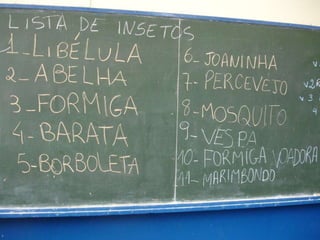 LISTA DE INSETOS
1-LIBÉLULA
2-ABELHA
3-FORMIGA
4-BARATA
5-BORBOLETA
6-JOANINHA
7-PERCEVEJO
8-MOSQUITO
9-VESPA
10-FORMIGA VOADORA
11-MARIMBONDO